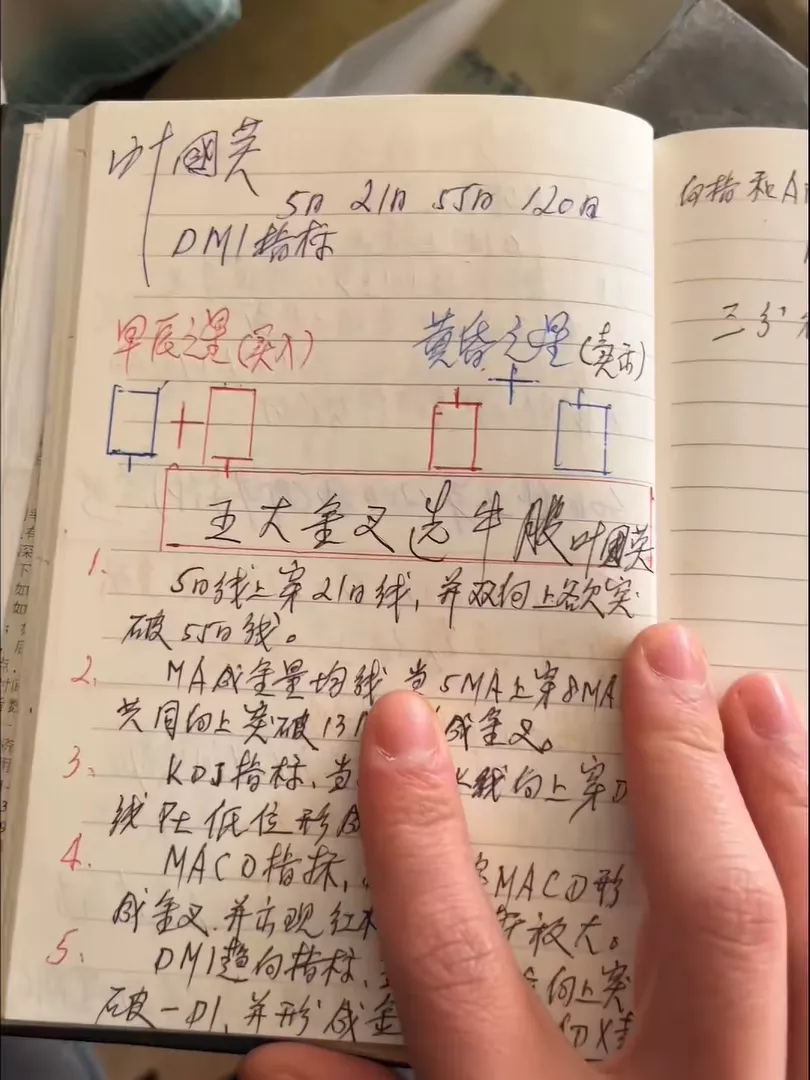 叶國英
5日 21日 55日 120日
DMI指标
早辰之星(买入) 黄昏之星(卖出)
五大金叉选牛股 叶國英
1. 5日线上穿21日线，并双向上各次突
破55日线。
2. MA成金量均线 当5MA上穿8MA
共同向上突破13 成金叉。
3. KDJ指标，当 线向上穿D
线 在低位形成
4. MACD指标， MACD形
成金叉.并出现红 放大。
5. DMI趋向指标， 向上突
破-DI，并形成金
向指和A
三